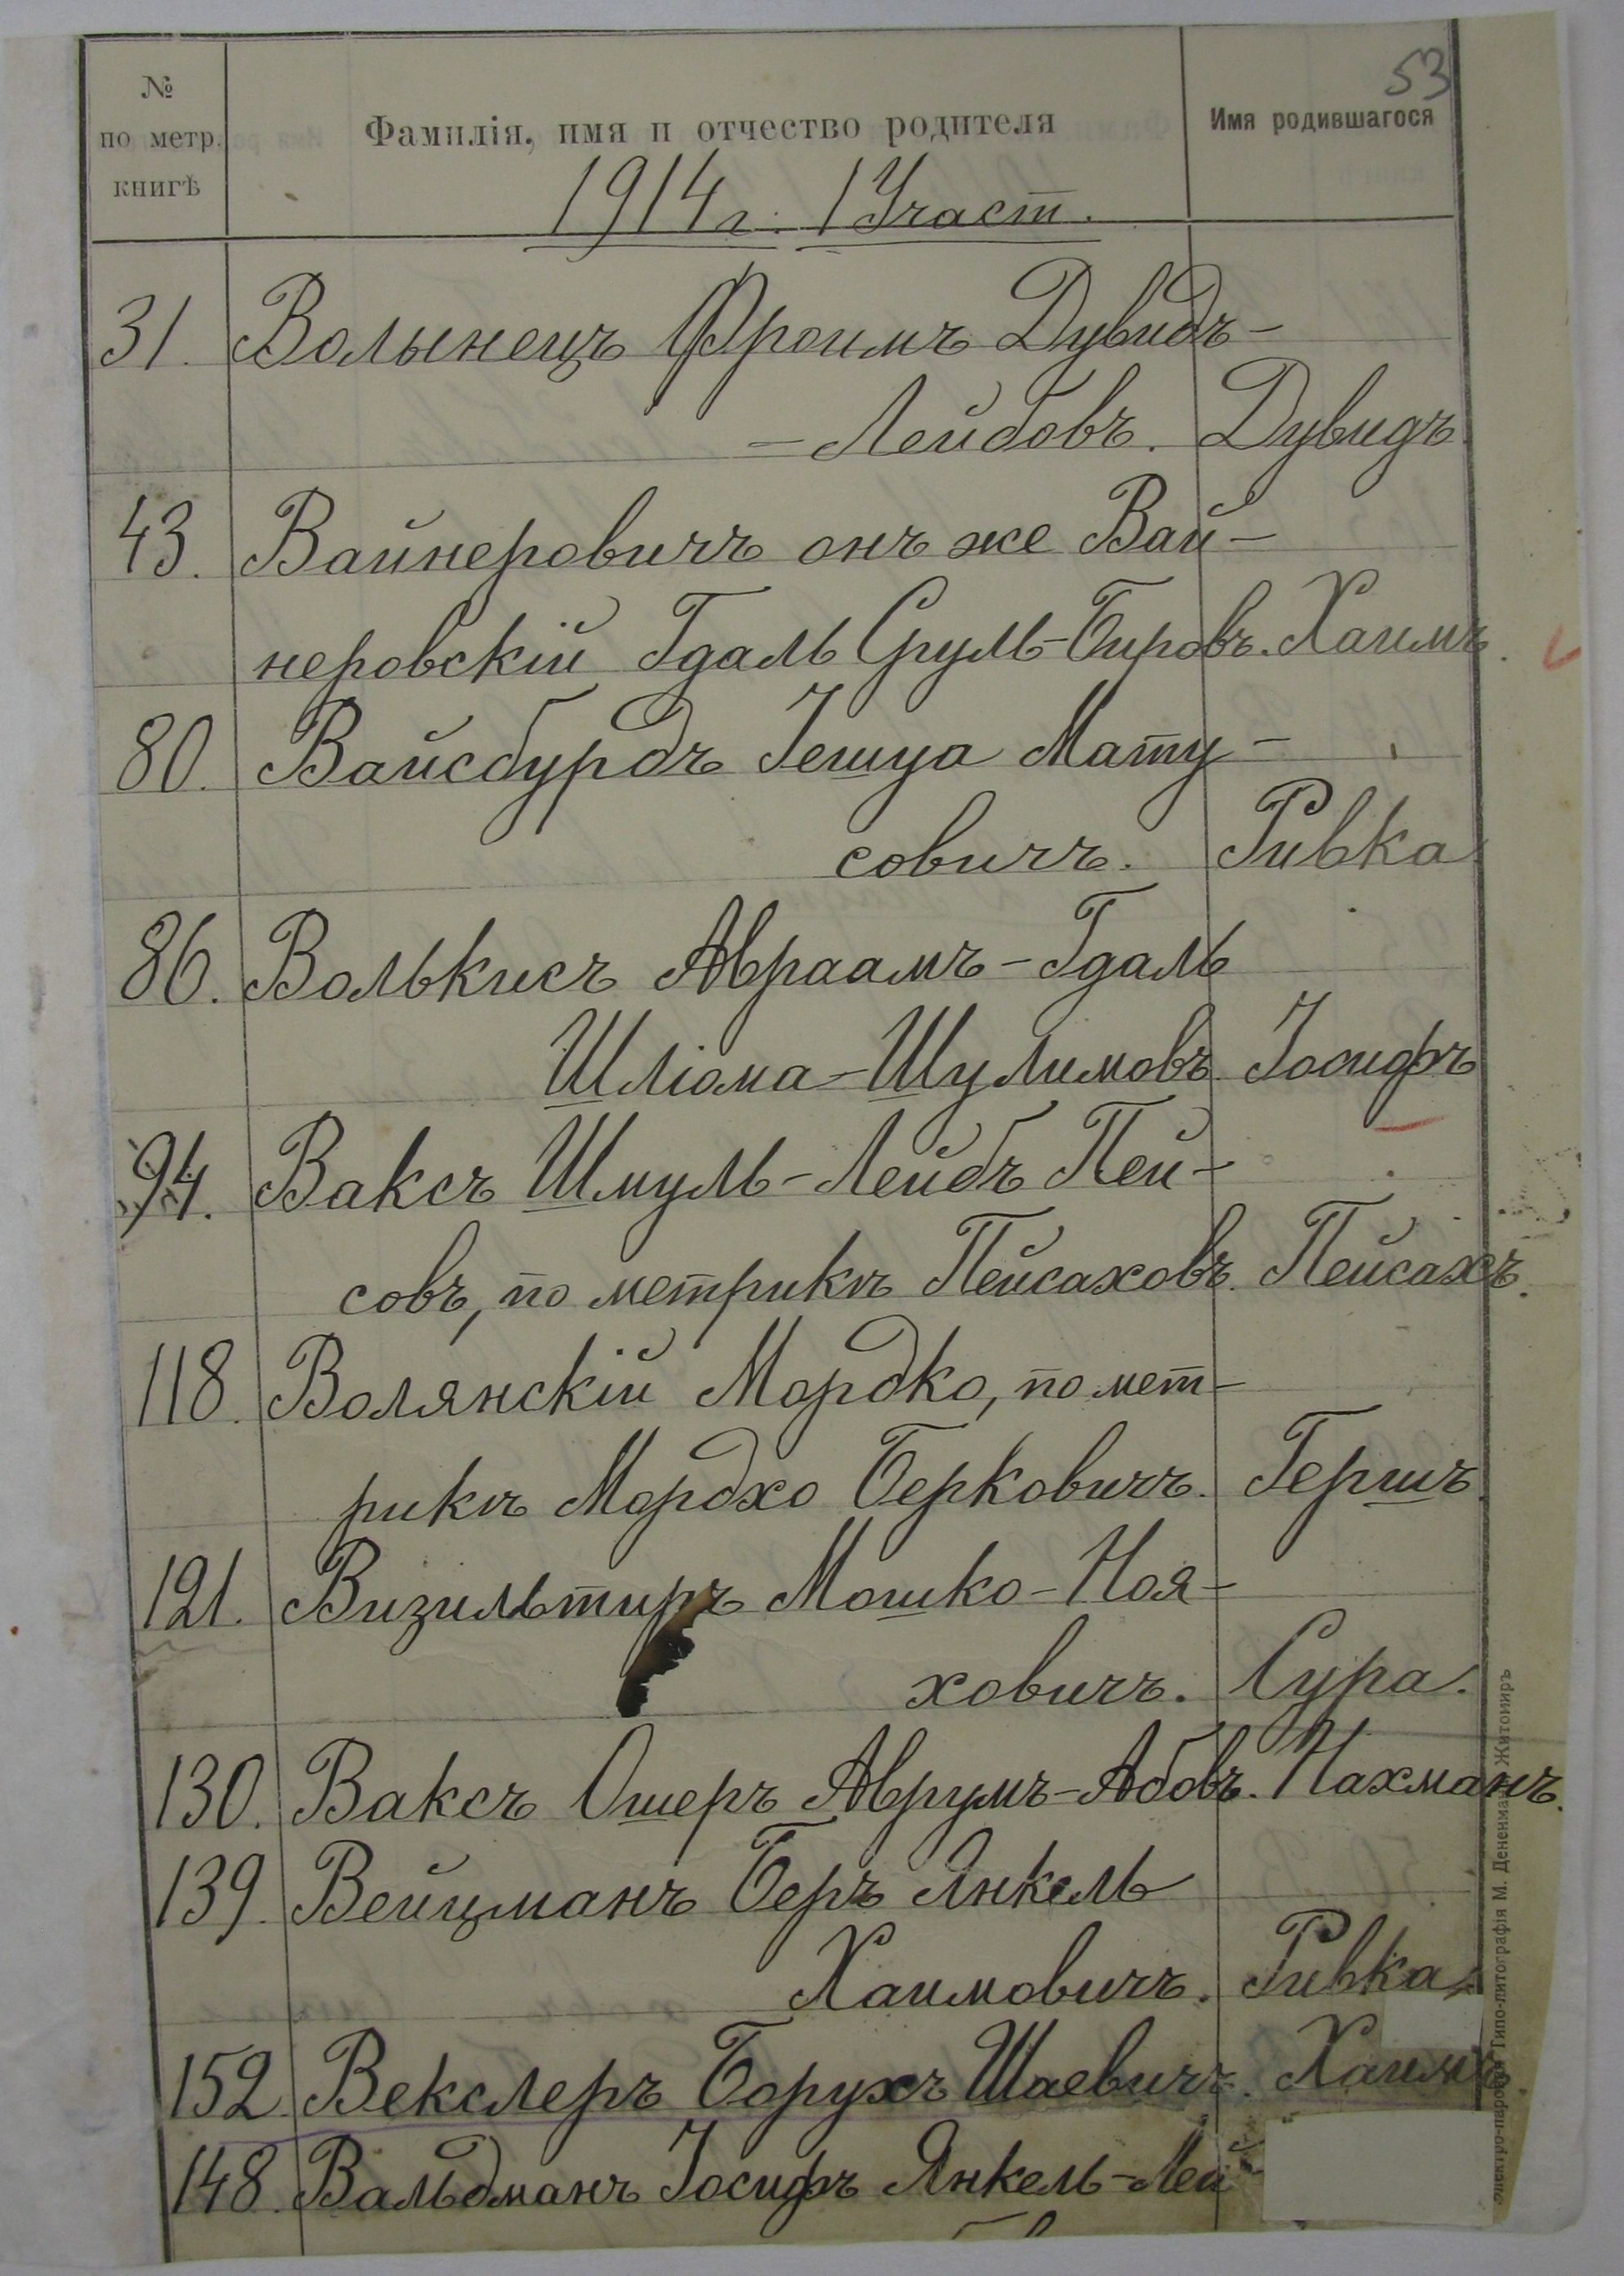 53
№
по метр.
книгѣ
Фамилія, имя и отчество родителя
Имя родившагося
1914 г. 1 Участ.
31. Волынецъ Фроимъ Дувидъ-
-Лейбовъ. Дувидъ
43. Вайнеровичъ онъ же Вай-
неровскій Гдаль Сруль-Бировъ. Хаимъ.
80. Вайсбурдъ Іешуа Мату-
совичъ. Ривка
86. Волькисъ Авраамъ-Гдаль
Шліома-Шулимовъ. Іосифъ
94.Ваксъ Шмуль-Лейбъ Пей-
совъ, по метрикѣ Пейсаховъ. Пейсахъ.
118. Волянскій Мордко, по мет-
рикѣ Мордхо Берковичъ. Гершъ
121. Визильтиръ Мошко-Ноя-
ховичъ. Сура.
130. Ваксъ Ошеръ Аврумъ-Абовъ. Нахманъ.
139. Вейцманъ Беръ Янкель
Хаимовичъ. Ривка
152. Векслеръ Борухъ Шаевичъ. Хаимъ
148. Вальдманъ Іосифъ Янкель-Лей
Типо-литографія М. Дененмана Житомиръ